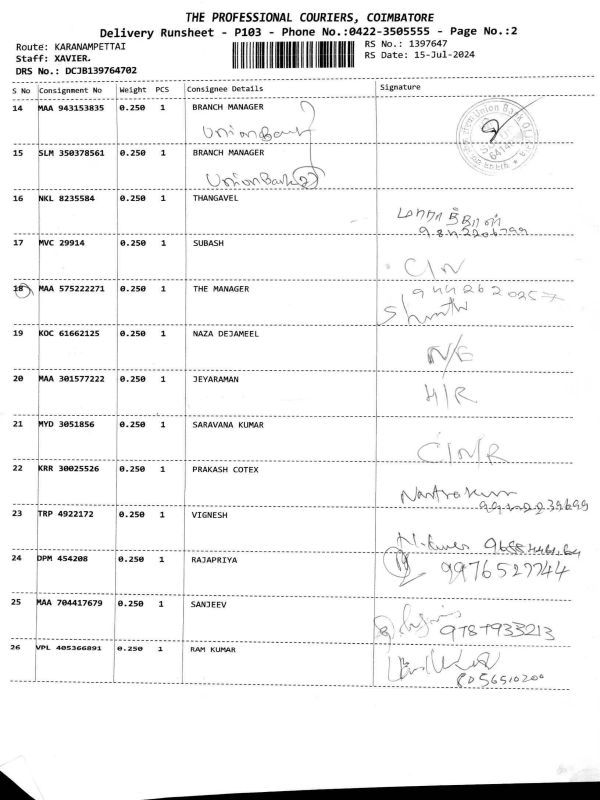 THE PROFESSIONAL COURIERS, COIMBATORE
Delivery Runsheet - P103 - Phone No.:0422-3505555 - Page No.:2
Route: KARANAMPETTAI
RS No.: 1397647
Staff: XAVIER.
RS Date: 15-Jul-2024
DRS No.: DCJB139764702
S No Consignment No Weight PCS Consignee Details Signature
14 MAA 943153835 0.250 1 BRANCH MANAGER
Union Bank
15 SLM 350378561 0.250 1 BRANCH MANAGER
Union Bank
16 NKL 8235584 0.250 1 THANGAVEL
17 MVC 29914 0.250 1 SUBASH
C/N
18 MAA 575222271 0.250 1 THE MANAGER
19 KOC 61662125 0.250 1 NAZA DEJAMEEL
N/S
20 MAA 301577222 0.250 1 JEYARAMAN
H/R
21 MYD 3051856 0.250 1 SARAVANA KUMAR
C/N/R
22 KRR 30025526 0.250 1 PRAKASH COTEX
23 TRP 4922172 0.250 1 VIGNESH
24 DPM 454208 0.250 1 RAJAPRIYA
9976527744
25 MAA 704417679 0.250 1 SANJEEV
9787933213
26 VPL 405366891 0.250 1 RAM KUMAR
8056510200